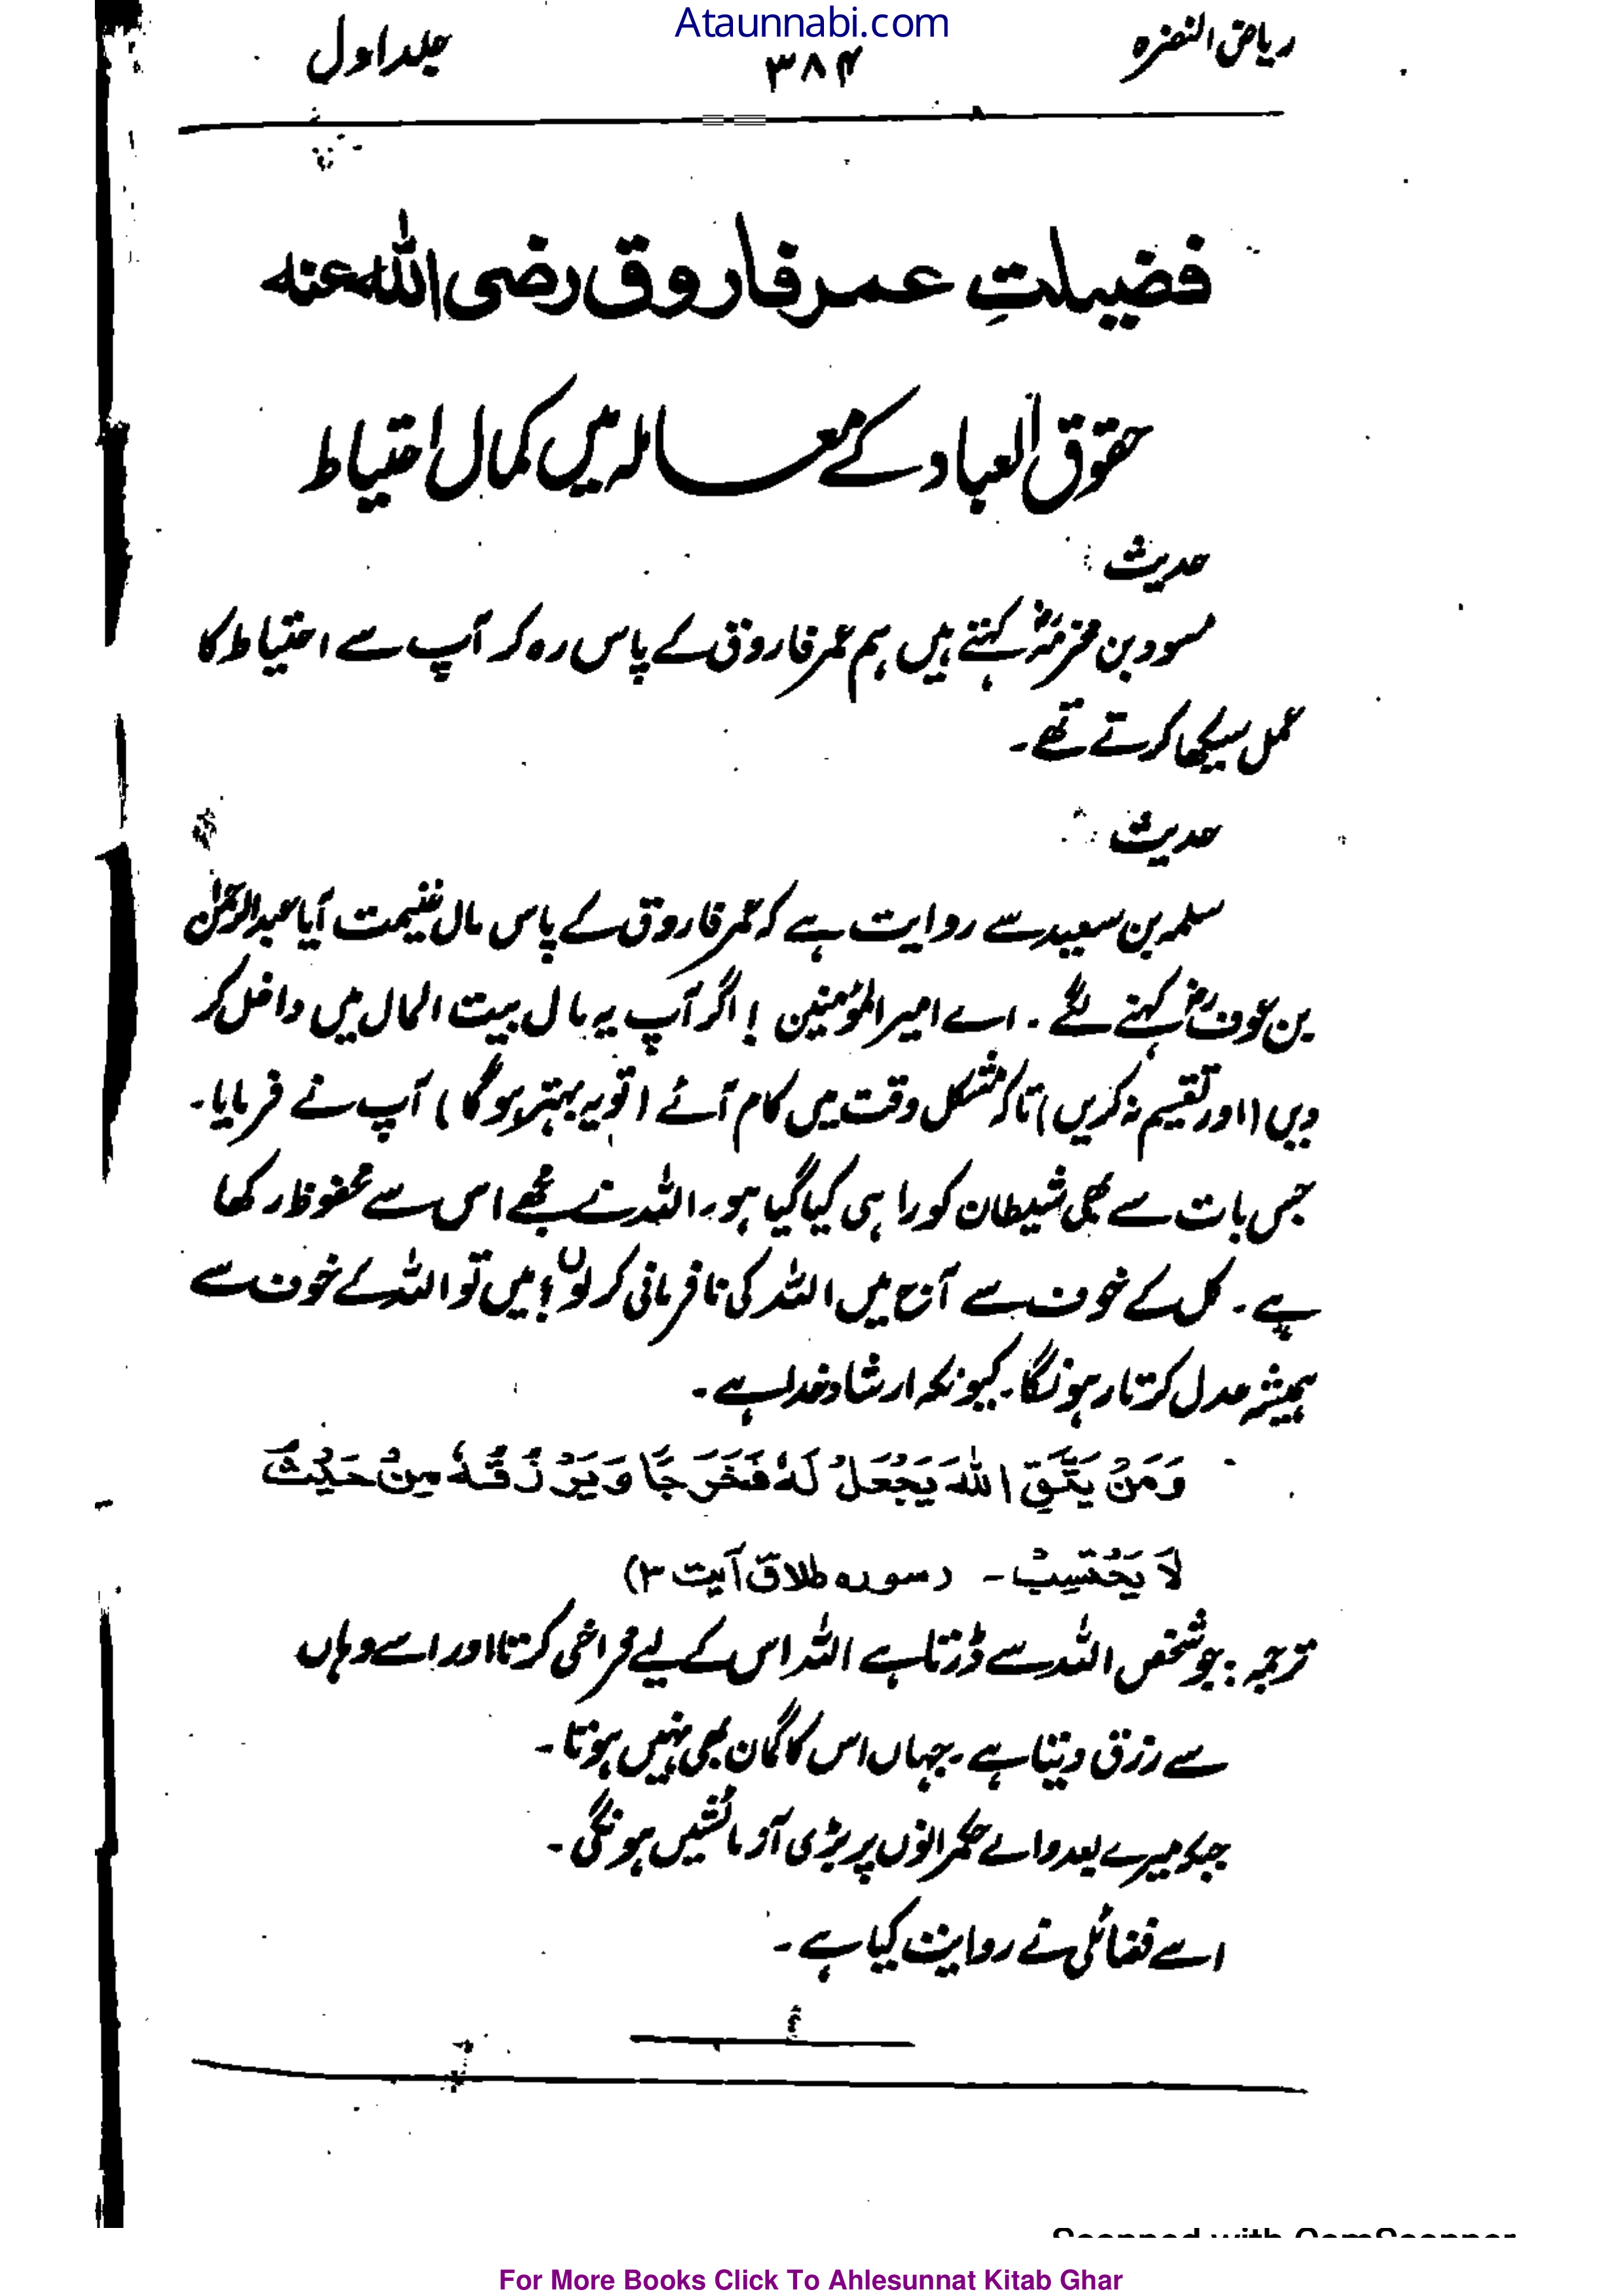 Ataunnabi.com
ریاض النضرہ ۳۸۴ جلد اول
فضیلتِ عمر فاروق رضی اللہ عنہ
حقوق العباد کے معاملہ میں کمال احتیاط
حدیث
مسور بن مخرمہؓ کہتے ہیں ہم عمر فاروق کے پاس رہ کر آپ سے احتیاط کا
عمل سیکھا کرتے تھے۔
حدیث
سلمہ بن سعید سے روایت ہے کہ عمر فاروق کے پاس مال غنیمت آیا عبدالرحمٰن
بن عوفؓ کہنے لگے۔ اے امیر المؤمنین! اگر آپ یہ مال بیت المال میں داخل کر
دیں (اور تقسیم نہ کریں) تاکہ مشکل وقت میں کام آئے (تو یہ بہتر ہو گا) آپ نے فرمایا۔
جس بات سے بھی شیطان کو راہی کیا گیا ہو، اللہ نے مجھے اس سے محفوظ رکھا
ہے۔ کل کے خوف سے آج میں اللہ کی نافرمانی کر لوں؟ میں تو اللہ کے خوف سے
ہمیشہ عدل کرتا رہونگا۔ کیونکہ ارشاد خدا ہے۔
وَمَنْ يَتَّقِ اللّٰهَ يَجْعَلْ لَهٗ مَخْرَجًا وَيَرْزُقْهُ مِنْ حَيْثُ
لَا يَحْتَسِبْ۔ (سورہ طلاق آیت ۳)
ترجمہ: جو شخص اللہ سے ڈرتا ہے اللہ اس کے لیے فراخی کرتا اور اسے وہاں
سے رزق دیتا ہے۔ جہاں اس کا گمان بھی نہیں ہوتا۔
جبکہ میرے بعد والے حکمرانوں پر بڑی آزمائشیں ہونگی۔
اسے فضائلی نے روایت کیا ہے۔
For More Books Click To Ahlesunnat Kitab Ghar